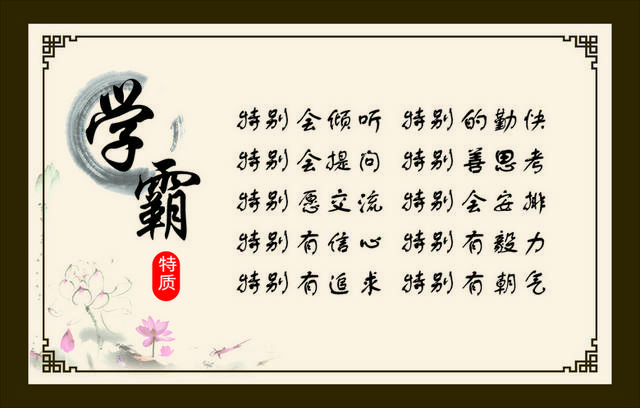 学霸
特质
特别会倾听 特别的勤快
特别会提问 特别善思考
特别愿交流 特别会安排
特别有信心 特别有毅力
特别有追求 特别有朝气